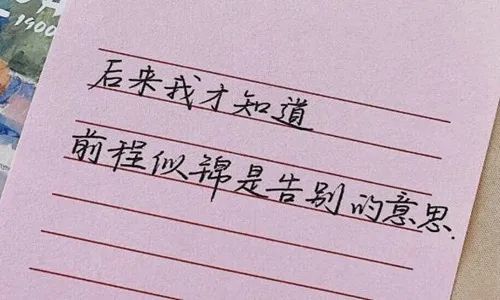 1900
后来我才知道
前程似锦是告别的意思.